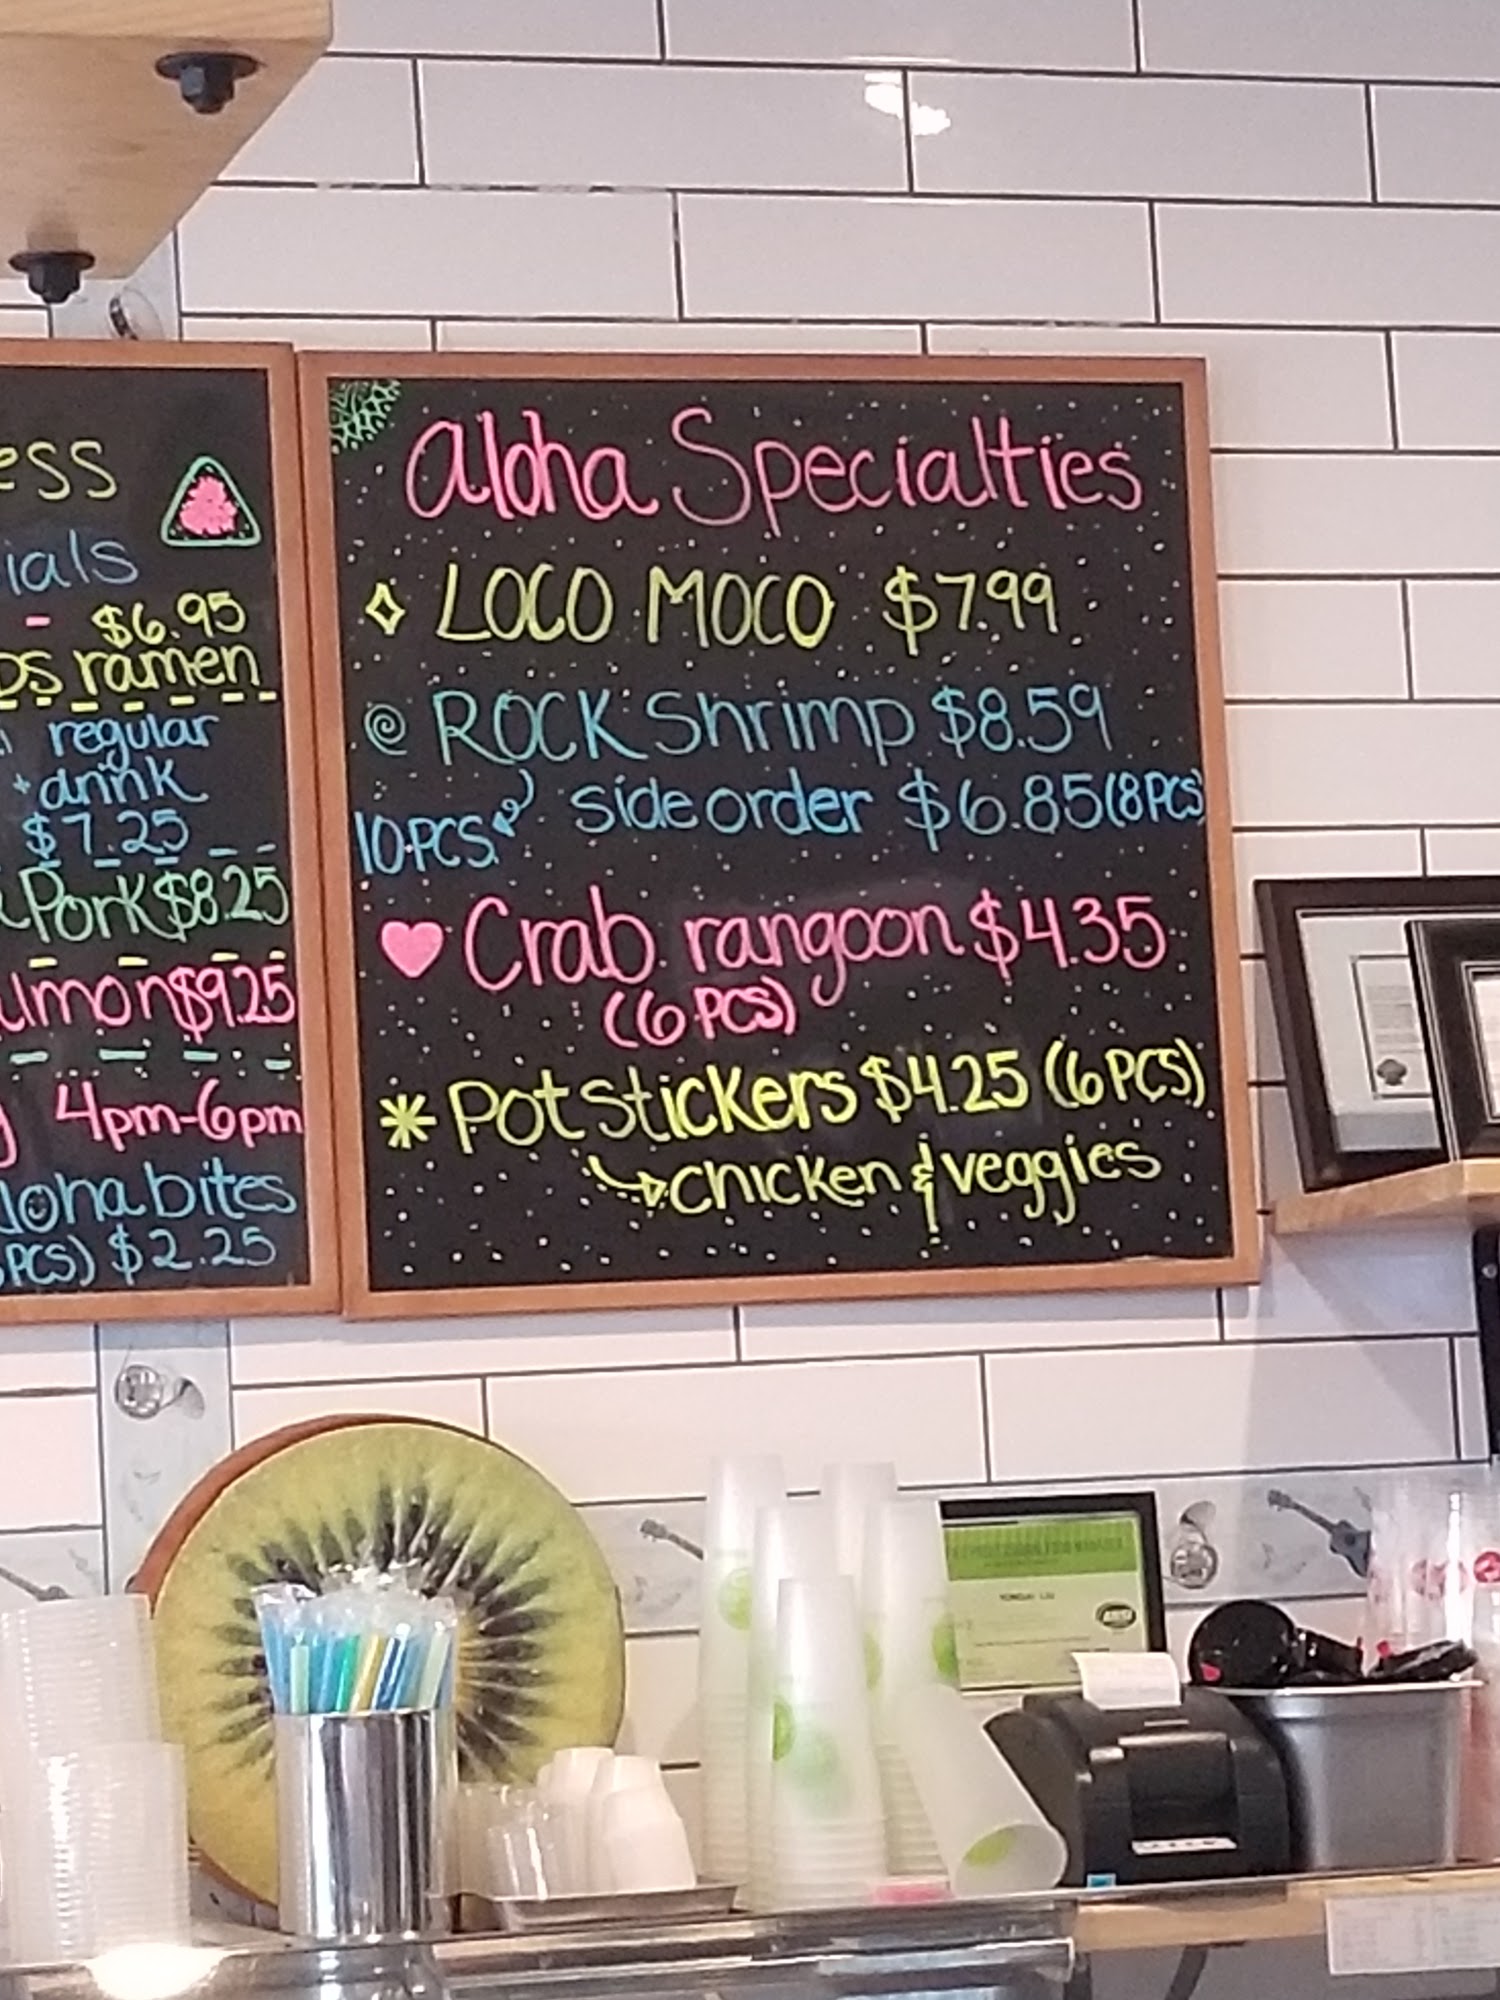 ess
ials
- $6.95
ps ramen
regular
+ drink
$7.25
Pork $8.25
almon $9.25
4pm-6pm
loha bites
PCS) $2.25
aloha Specialties
LOCO MOCO $7.99
ROCK Shrimp $8.59
10PCS. side order $6.85 (8PCS)
Crab rangoon $4.35
(6 PCS)
Pot Stickers $4.25 (6PCS)
chicken & veggies